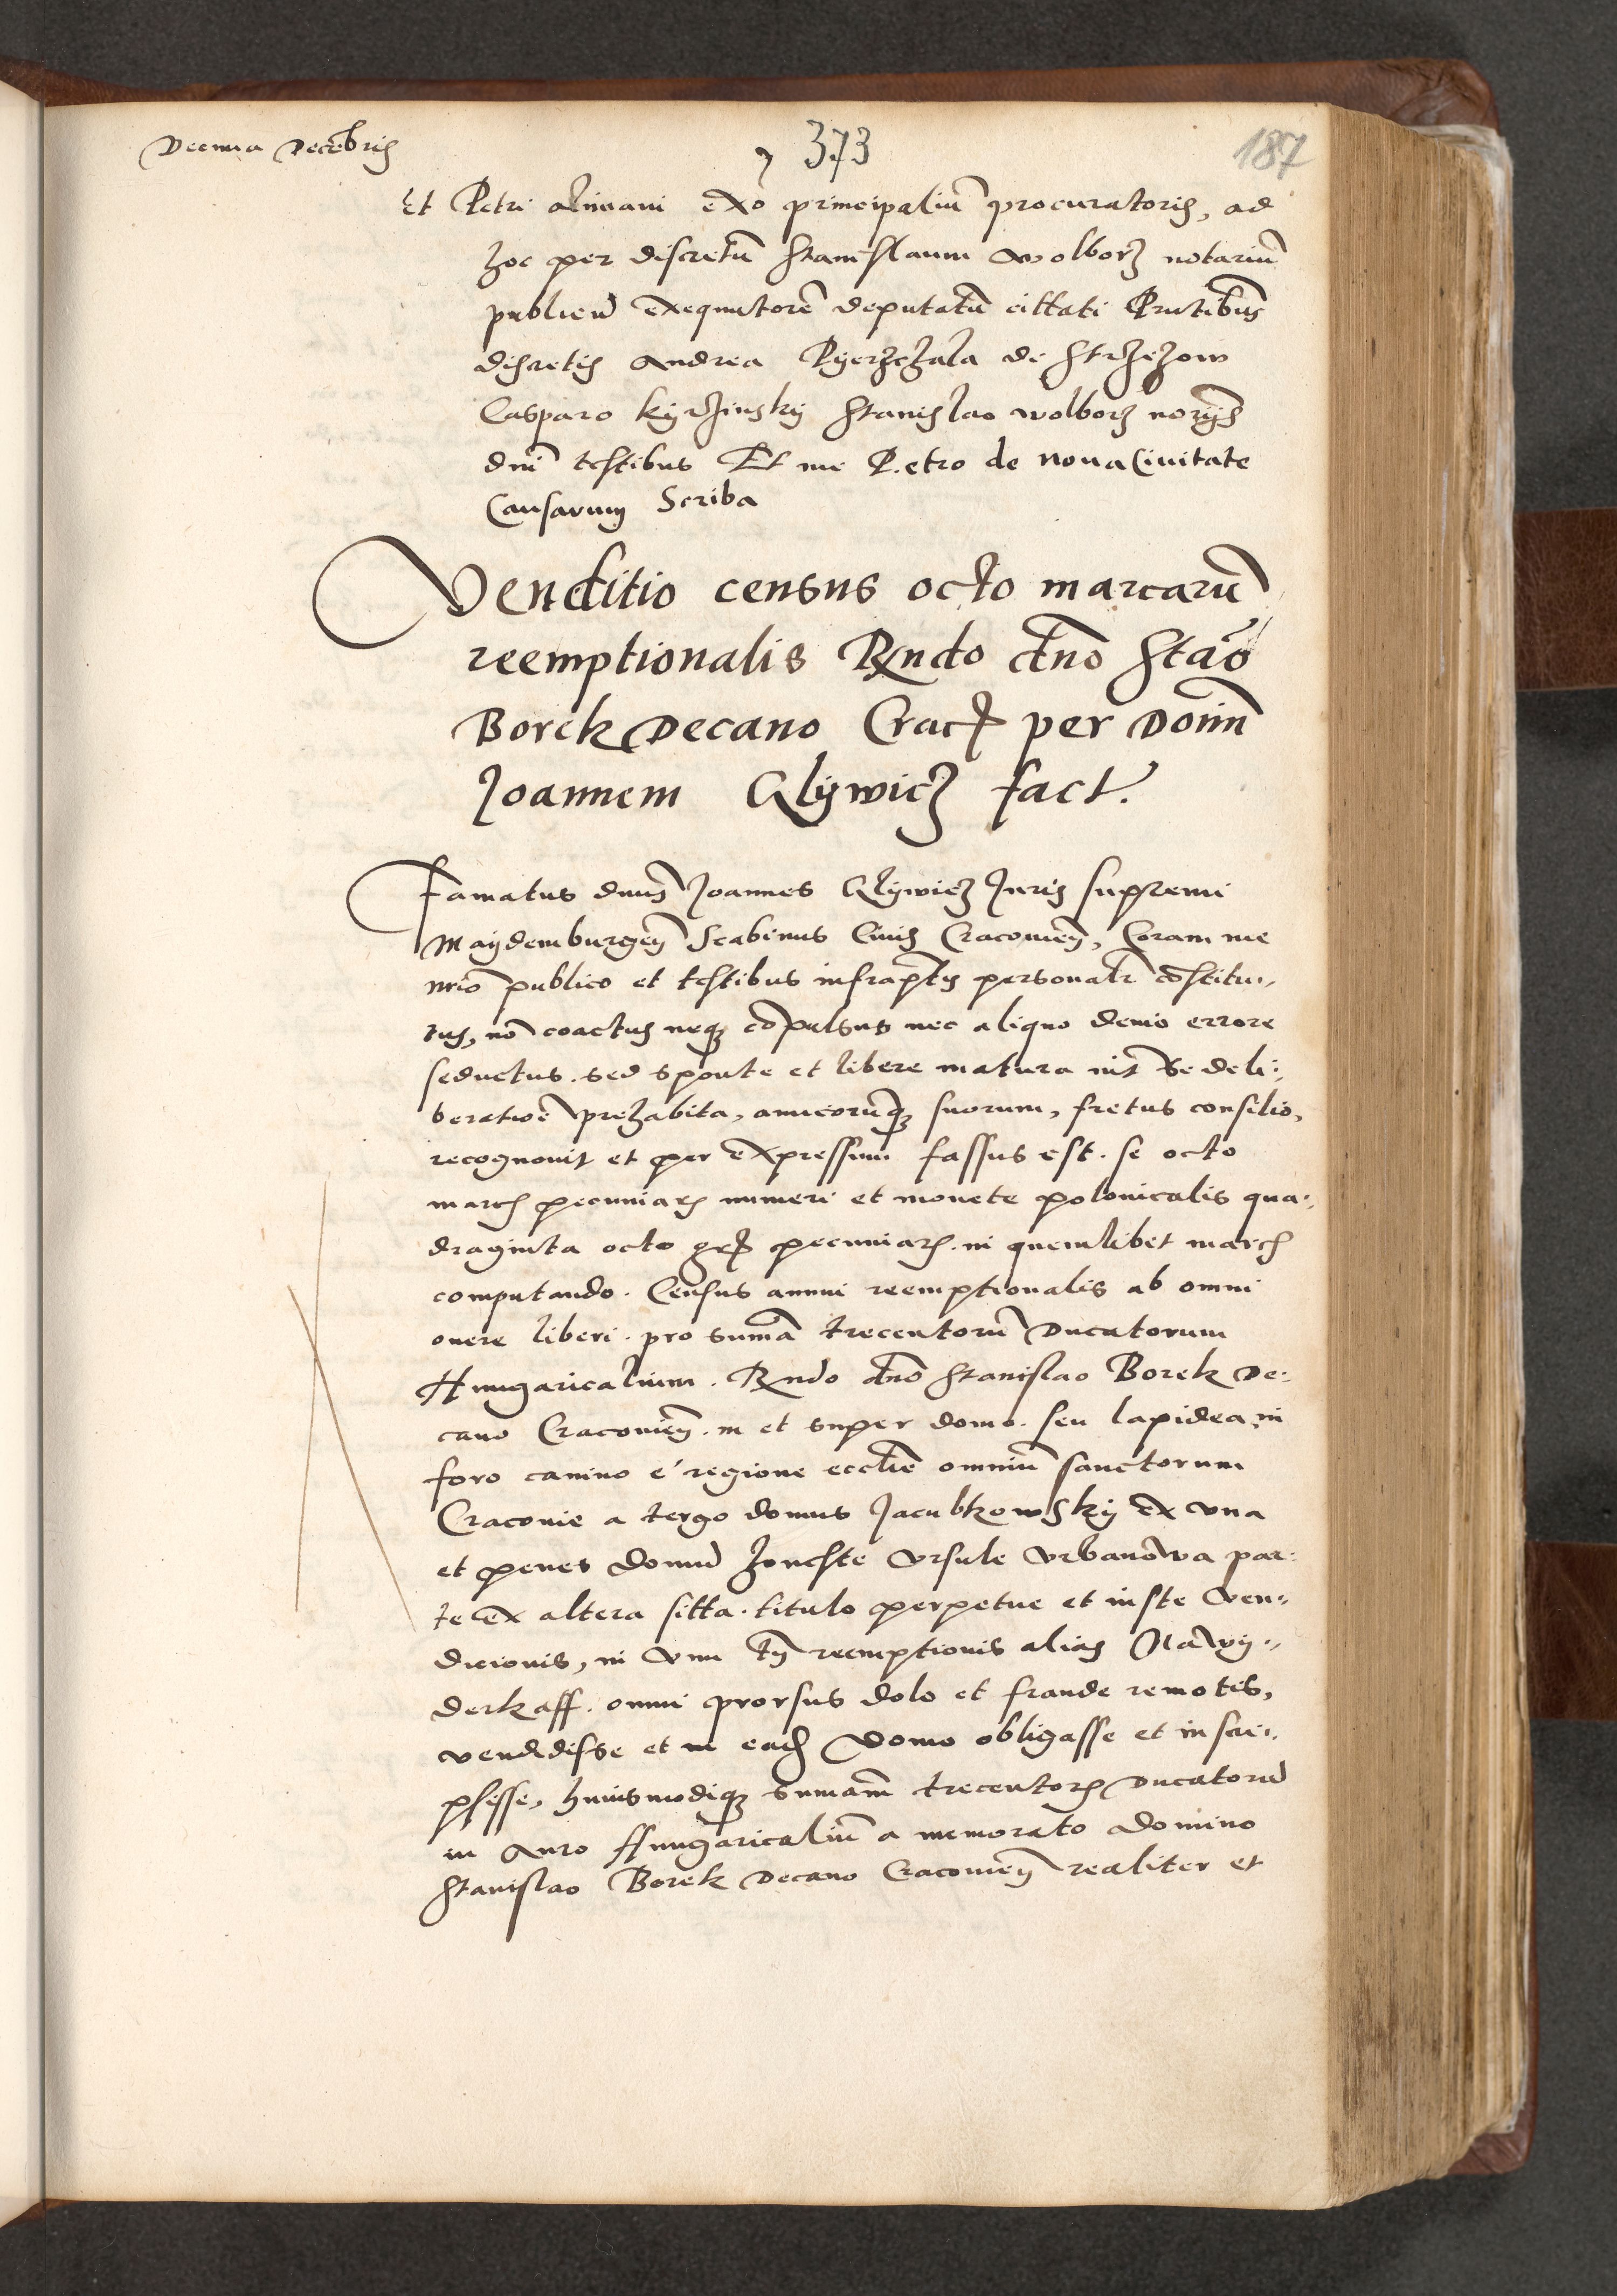 Decima Decēbris
373
187
Et Petri alimani exo principaliū procuratoris, ad
hoc per discretū Stanislaum Wolborz notariū
publicū exequutorē deputatū cittati Prntibus
discretis Andrea Pyerzchala de Strzezow
Casparo kyrzinsky Stanislao wolborz norijs
dni testibus Et me Petro de Noua Ciuitate
Causarum Scriba
Venditio census octo marcarū
reemptionalis Rndo dno Stão
Borek Decano Crac per Domin
Joannem Glywicz fact.
Famatus dnus Joannes Glywicz Juris supremi
Maydemburgeñ Scabinus Ciuis Cracouieñ, Coram me
nrio publico et testibus infraptis personalr cōstitu„
tus, nō coactus neq cōpulsus nec aliquo deuio errore
seductus. sed sponte et libere matura int se deli„
beratioē prehabita, amicorūq suorum, fretus consilio,
recognouit et per expressum fassus est. se octo
marcs pecuniars numeri et monete polonicalis qua„
draginta octo gr pecuniars. in quemlibet march
computando. Census annui reemptionalis ab omni
onere liberi. pro sumā trecentorū Ducatorum
Hungaricalium. Rndo dno Stanislao Borek De„
cano Cracouieñ. in et super domo. seu lapidea, in
foro canino e' regione ecclie omniū sanctorum
Cracouie a tergo domus Jacubkowsky ex vna
et penes domū honeste Vrsule Vrbanowa par„
te ex altera sitta. titulo perpetue et iuste Ven„
dicionis, in vim tñ reemptionis alias Nawy„
derkaff. omni prorsus dolo et fraude remotis,
vendidisse et in ead Domo obligasse et inscri„
psisse, huiusmodiq sumam trecentors Ducatorū
in Auro Hungaricaliū a memorato domino
Stanislao Borek Decano Cracouieñ realiter et